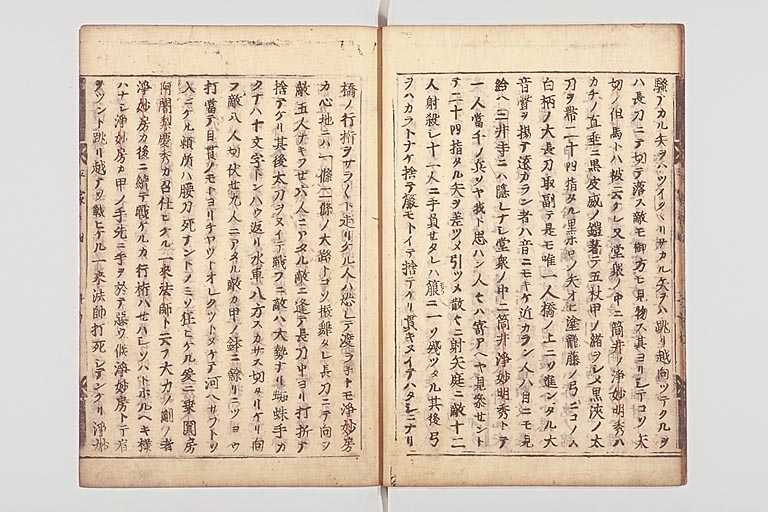 騒テカル矢ヲハツイクヽリサカル矢ヲハ跳リ越向ツテクルヲ
ハ長刀ニテ切テ落ス敵モ御方モ見物ス其ヨリシテコソ矢
切ノ但馬トハ被云ケレ又堂衆ノ中ニ筒井ノ浄妙明秀ハ
カチノ直垂ニ黒皮威ノ鎧著テ五枚甲ノ緒ヲシメ黒漆ノ太
刀ヲ帯二十四指タル黒ホロノ矢オヒ塗籠藤ノ弓ニコノム
白柄ノ大長刀取副テ是モ唯一人橋ノ上ニソ進ンタル大
音聲ヲ掲テ遠カラン者ハ音ニモキケ近カラン人ハ目ニモ見
給ヘ三井寺ニハ隠レナシ堂衆ノ中ニ筒井浄妙明秀トテ
一人當千ノ兵ソヤ我ト思ハン人々ハ寄アヘヤ見参セント
テ二十四指タル矢ヲ差ツメ引ツメ散々ニ射矢庭ニ敵十二
人射殺シ十一人ニ手負セタレハ箙ニ一ソ残ツタル其後弓
ヲハカラトナケ捨テ箙モトイテ捨テケリ貫キヌイテハタシニナリ
橋ノ行桁ヲサラ〱ト走リケル人ハ恐レテ渡ラネトモ浄妙房
カ心地ニハ一條二條ノ大路トコソ振舞タレ長刀ニテ向フ
敵五人ナキフセ六人ニアタル敵ニ逢テ長刀中ヨリ打折テ
捨テケリ其後太刀ヲヌイテ戦フニ敵ハ大勢ナリ蜘蛛手カ
クナハ十文字トンハウ返リ水車八方スカサス切タリケリ向
フ敵八人切伏セ九人ニアタル敵カ甲ノ鉢ニ餘リニツヨウ
打當テ目貫ノモトヨリチヤウトオレクツトヌケテ河ヘサフトソ
入ニケル頼所ハ腰刀死ナントノミソ狂ヒケル爰ニ乗圓房
阿闍梨慶秀カ召仕ヒケル一来法師ト云フ大力ノ剛ノ者
浄妙房カ後ニ続テ戦ケルカ行桁ハセハシソハトホルヘキ様
ハナシ浄妙房カ甲ノ手先ニ手ヲ於テ悪ウ候浄妙房トテ肩
ヲツント跳リ越テソ戦ヒケル一来法師打死シテンケリ浄妙